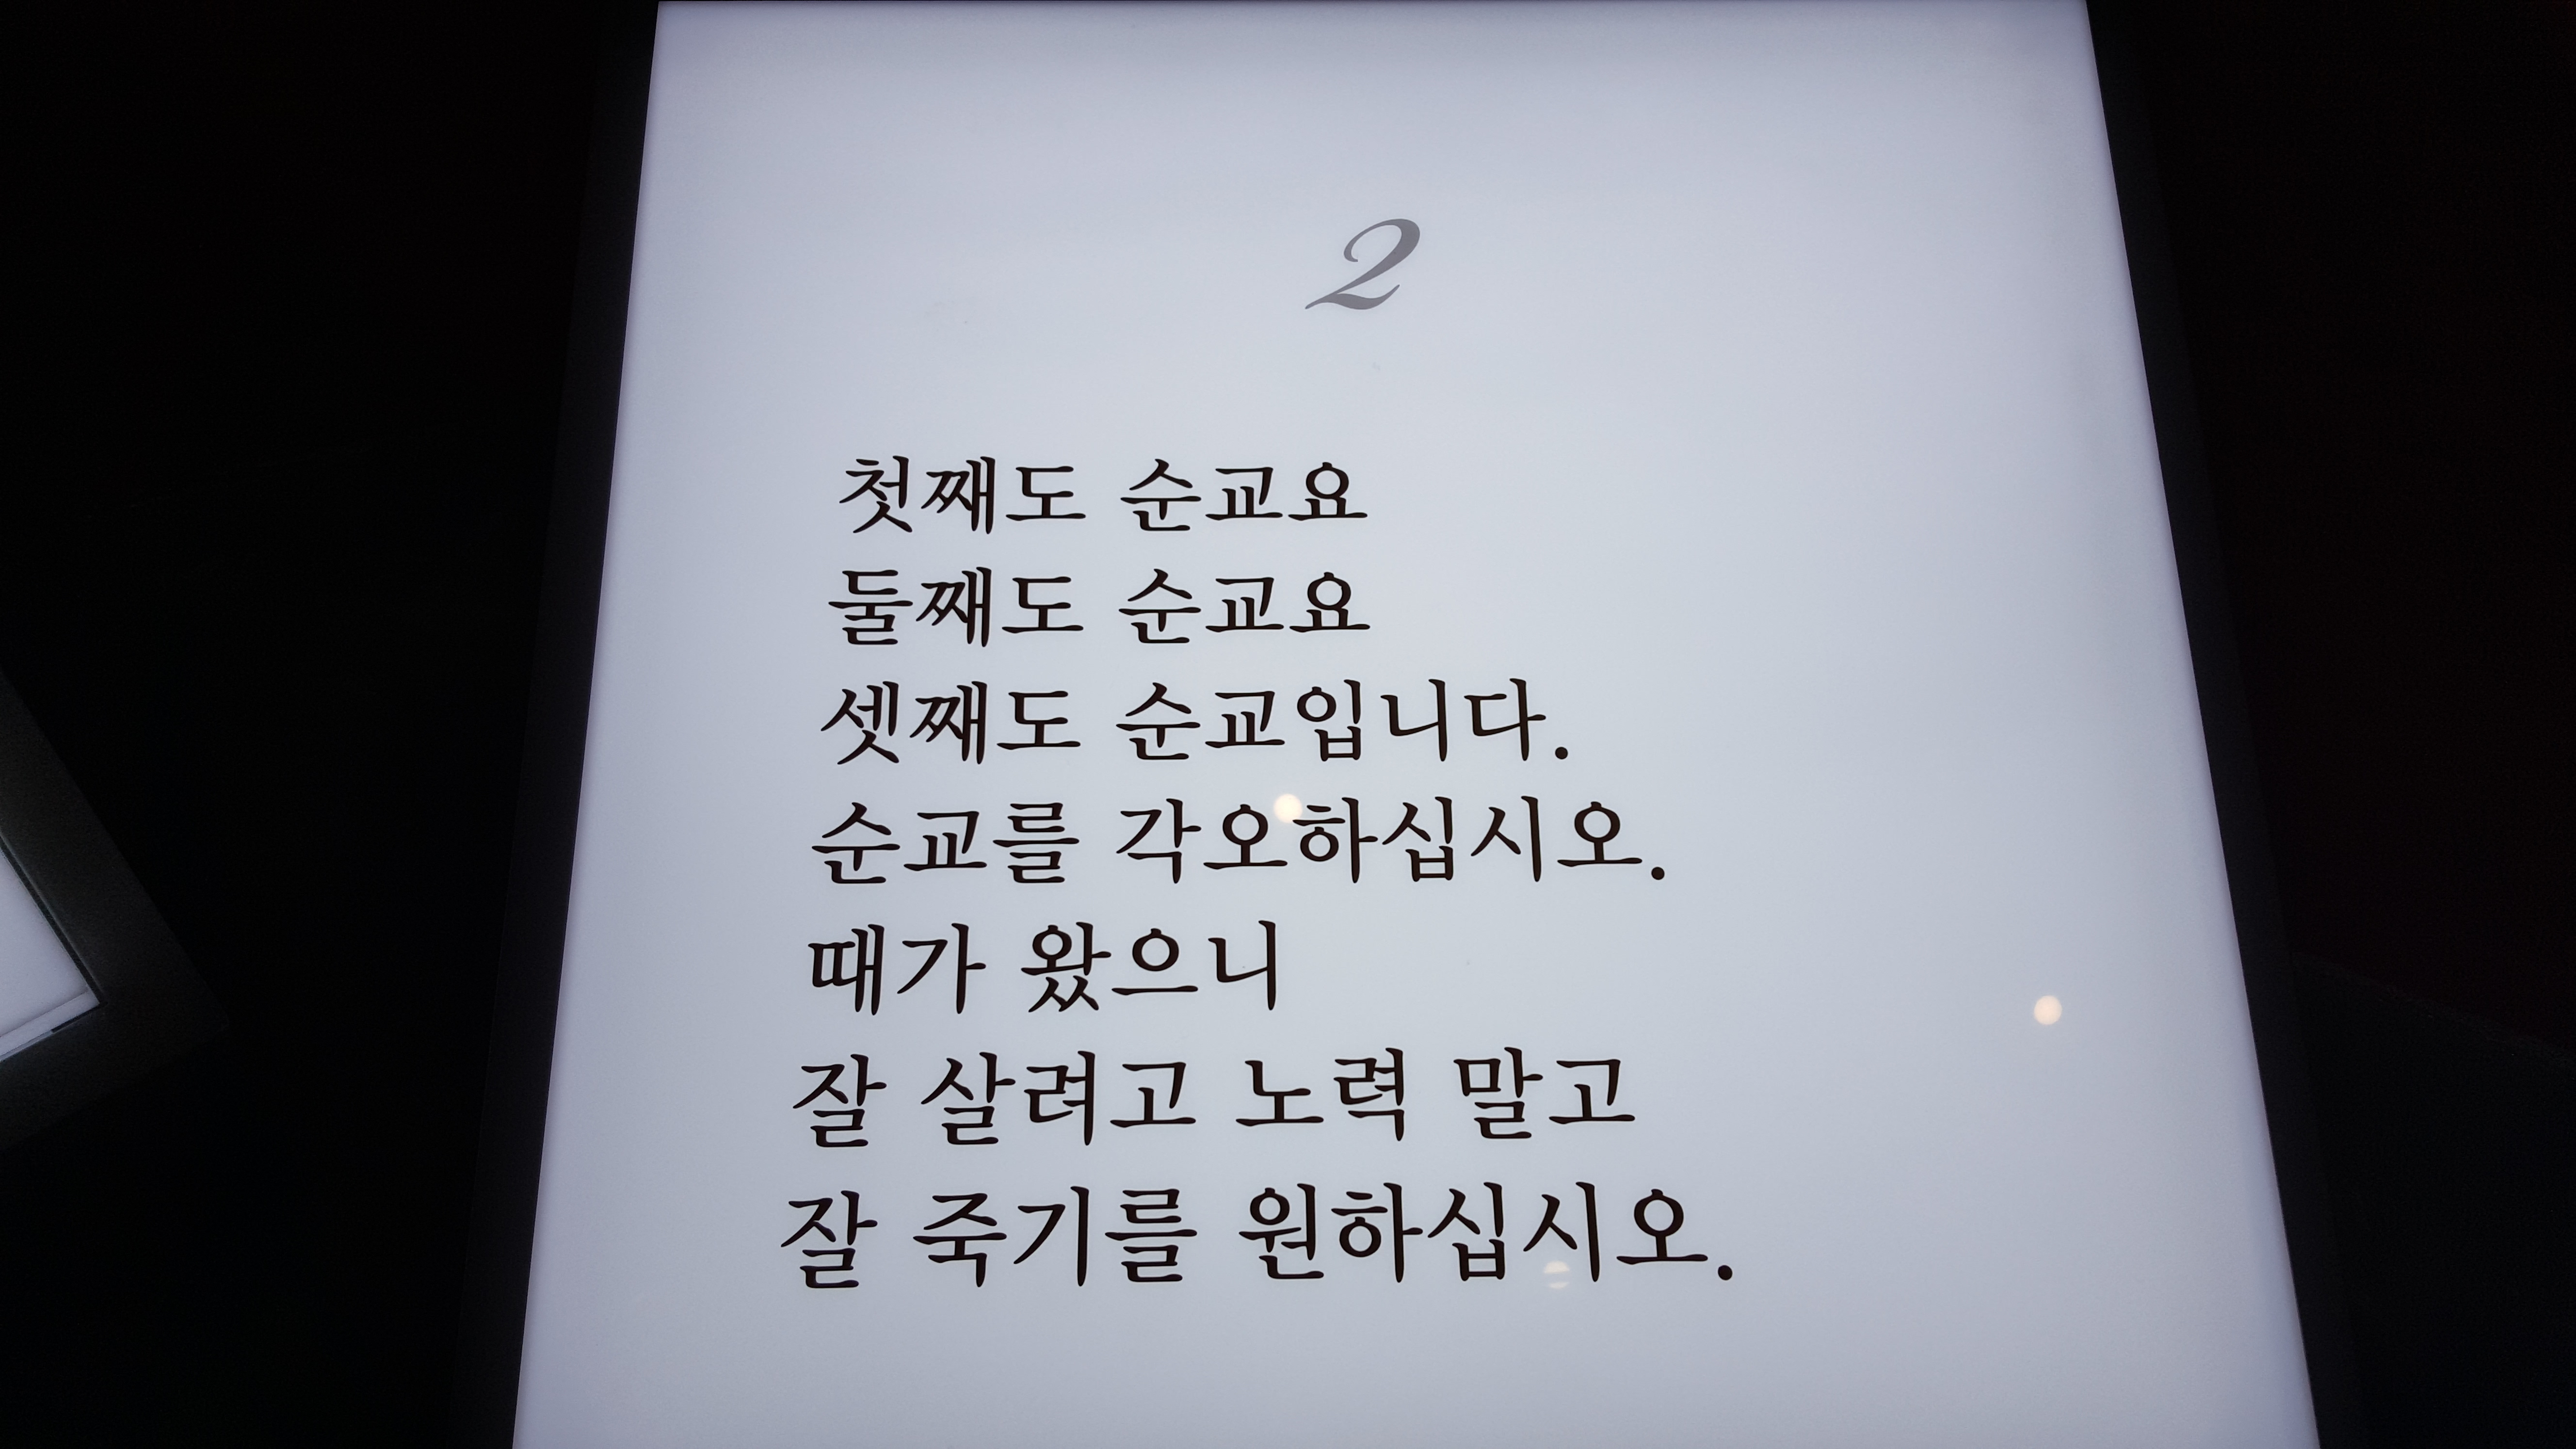 2
첫째도 순교요
둘째도 순교요
셋째도 순교입니다.
순교를 각오하십시오.
때가 왔으니
잘 살려고 노력 말고
잘 죽기를 원하십시오.